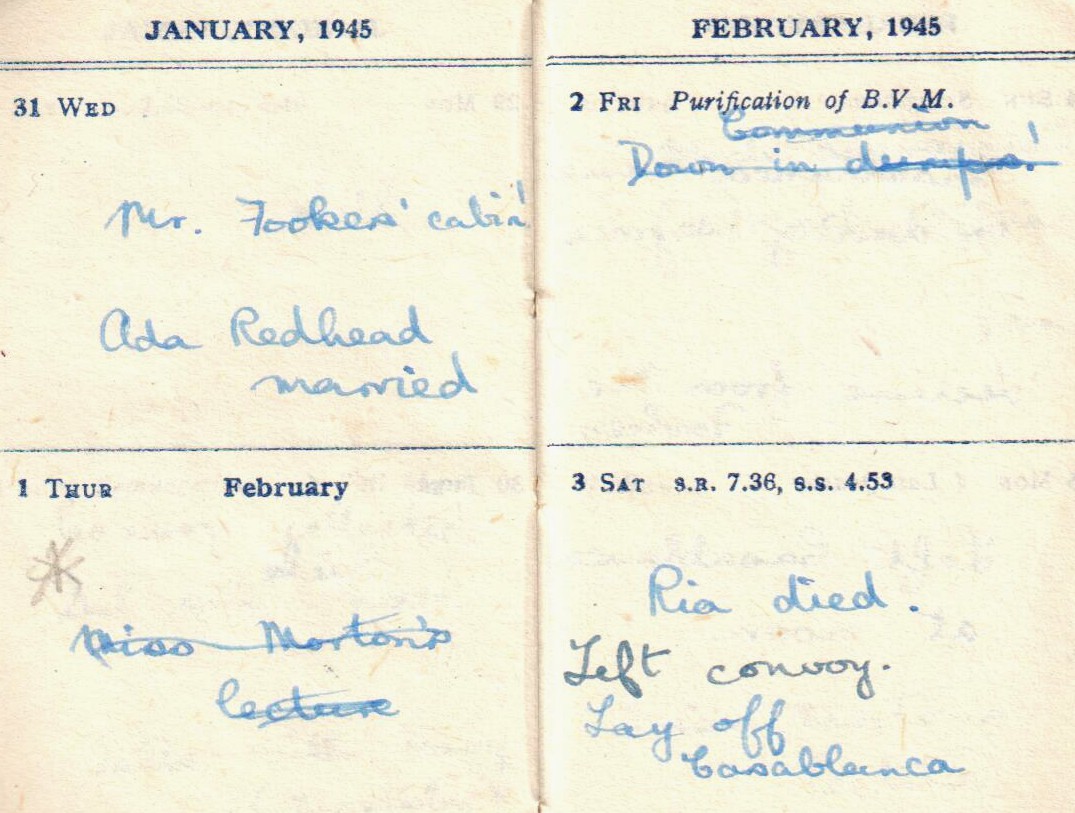 JANUARY, 1945
31 WED
Mr. Fookes' cabin
Ada Redhead
married
1 THUR February
Miss Morton's
lecture
FEBRUARY, 1945
2 FRI Purification of B.V.M.
Communion
Down in dumps!
3 SAT S.R. 7.36, S.S. 4.53
Ria died.
Left convoy.
Lay off
Casablanca